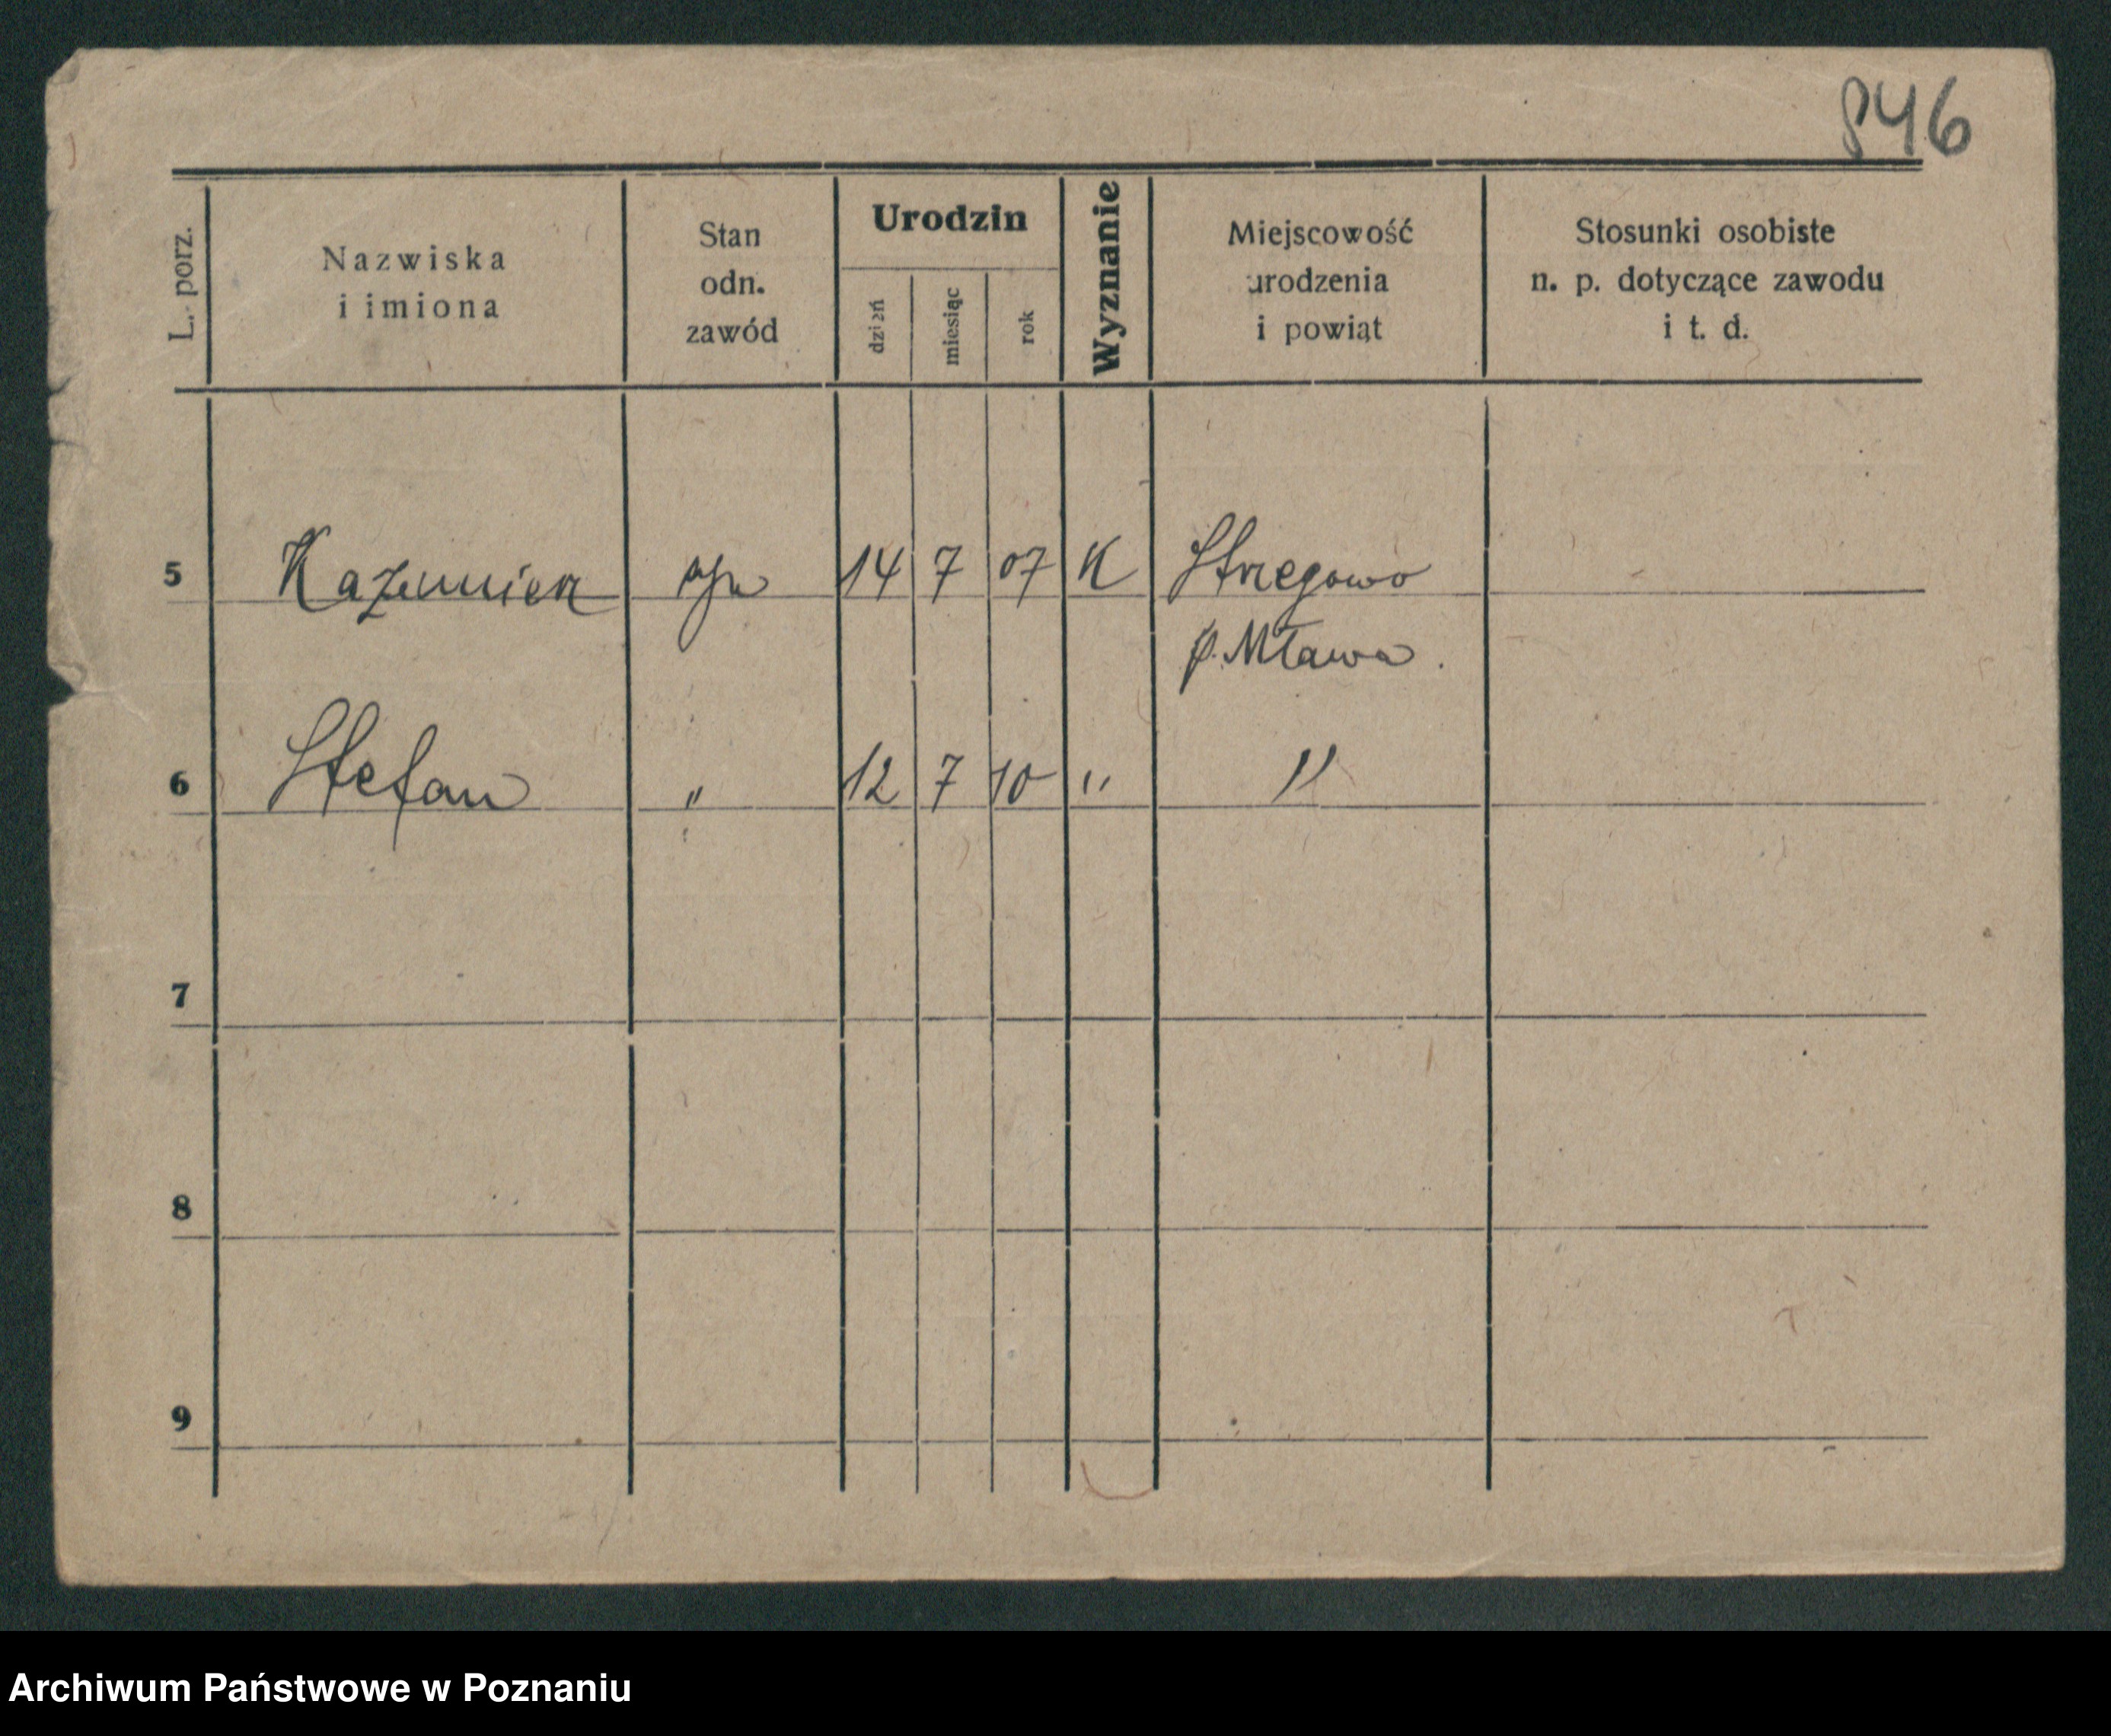 846
L. porz.
Nazwiska
i imiona
Stan
odn.
zawód
Urodzin
dzień
miesiąc
rok
Wyznanie
Miejscowość
urodzenia
i powiąt
Stosunki osobiste
n. p. dotyczące zawodu
i t. d.
5 14 7 07 K Strzegowo
p. Mława.
6 Stefan " 12 7 10 " "
7
8
9
Archiwum Państwowe w Poznaniu